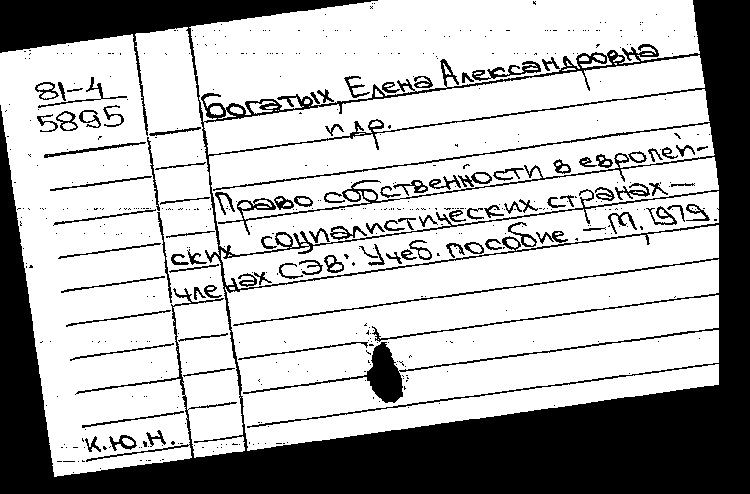 81-4
5895
Богатых, Елена Александровна
и др.
Право собственности в европей-
ских социалистических странах -
членах СЭВ: Учеб. пособие. - М., 1979.
к.ю.н.